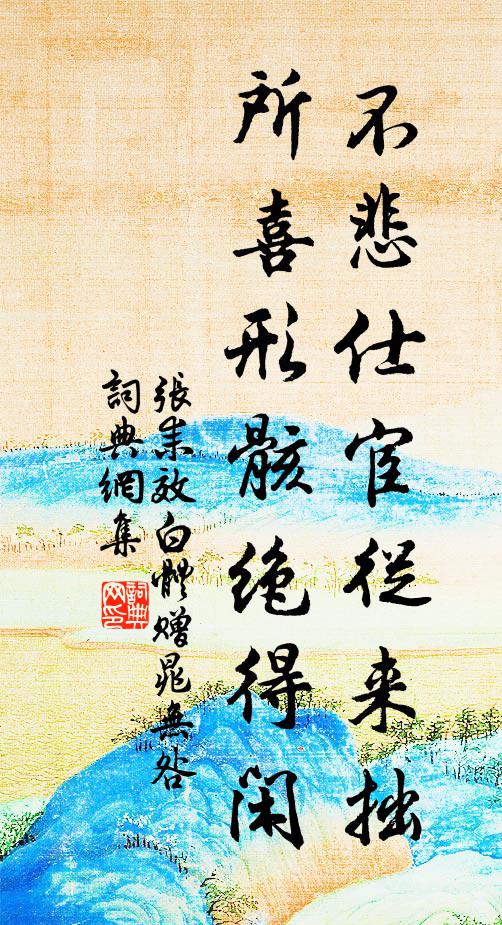 不悲仕宦從来拙
所喜形骸絶得闲
張耒效白體贈晁無咎
詞典網集
詞典